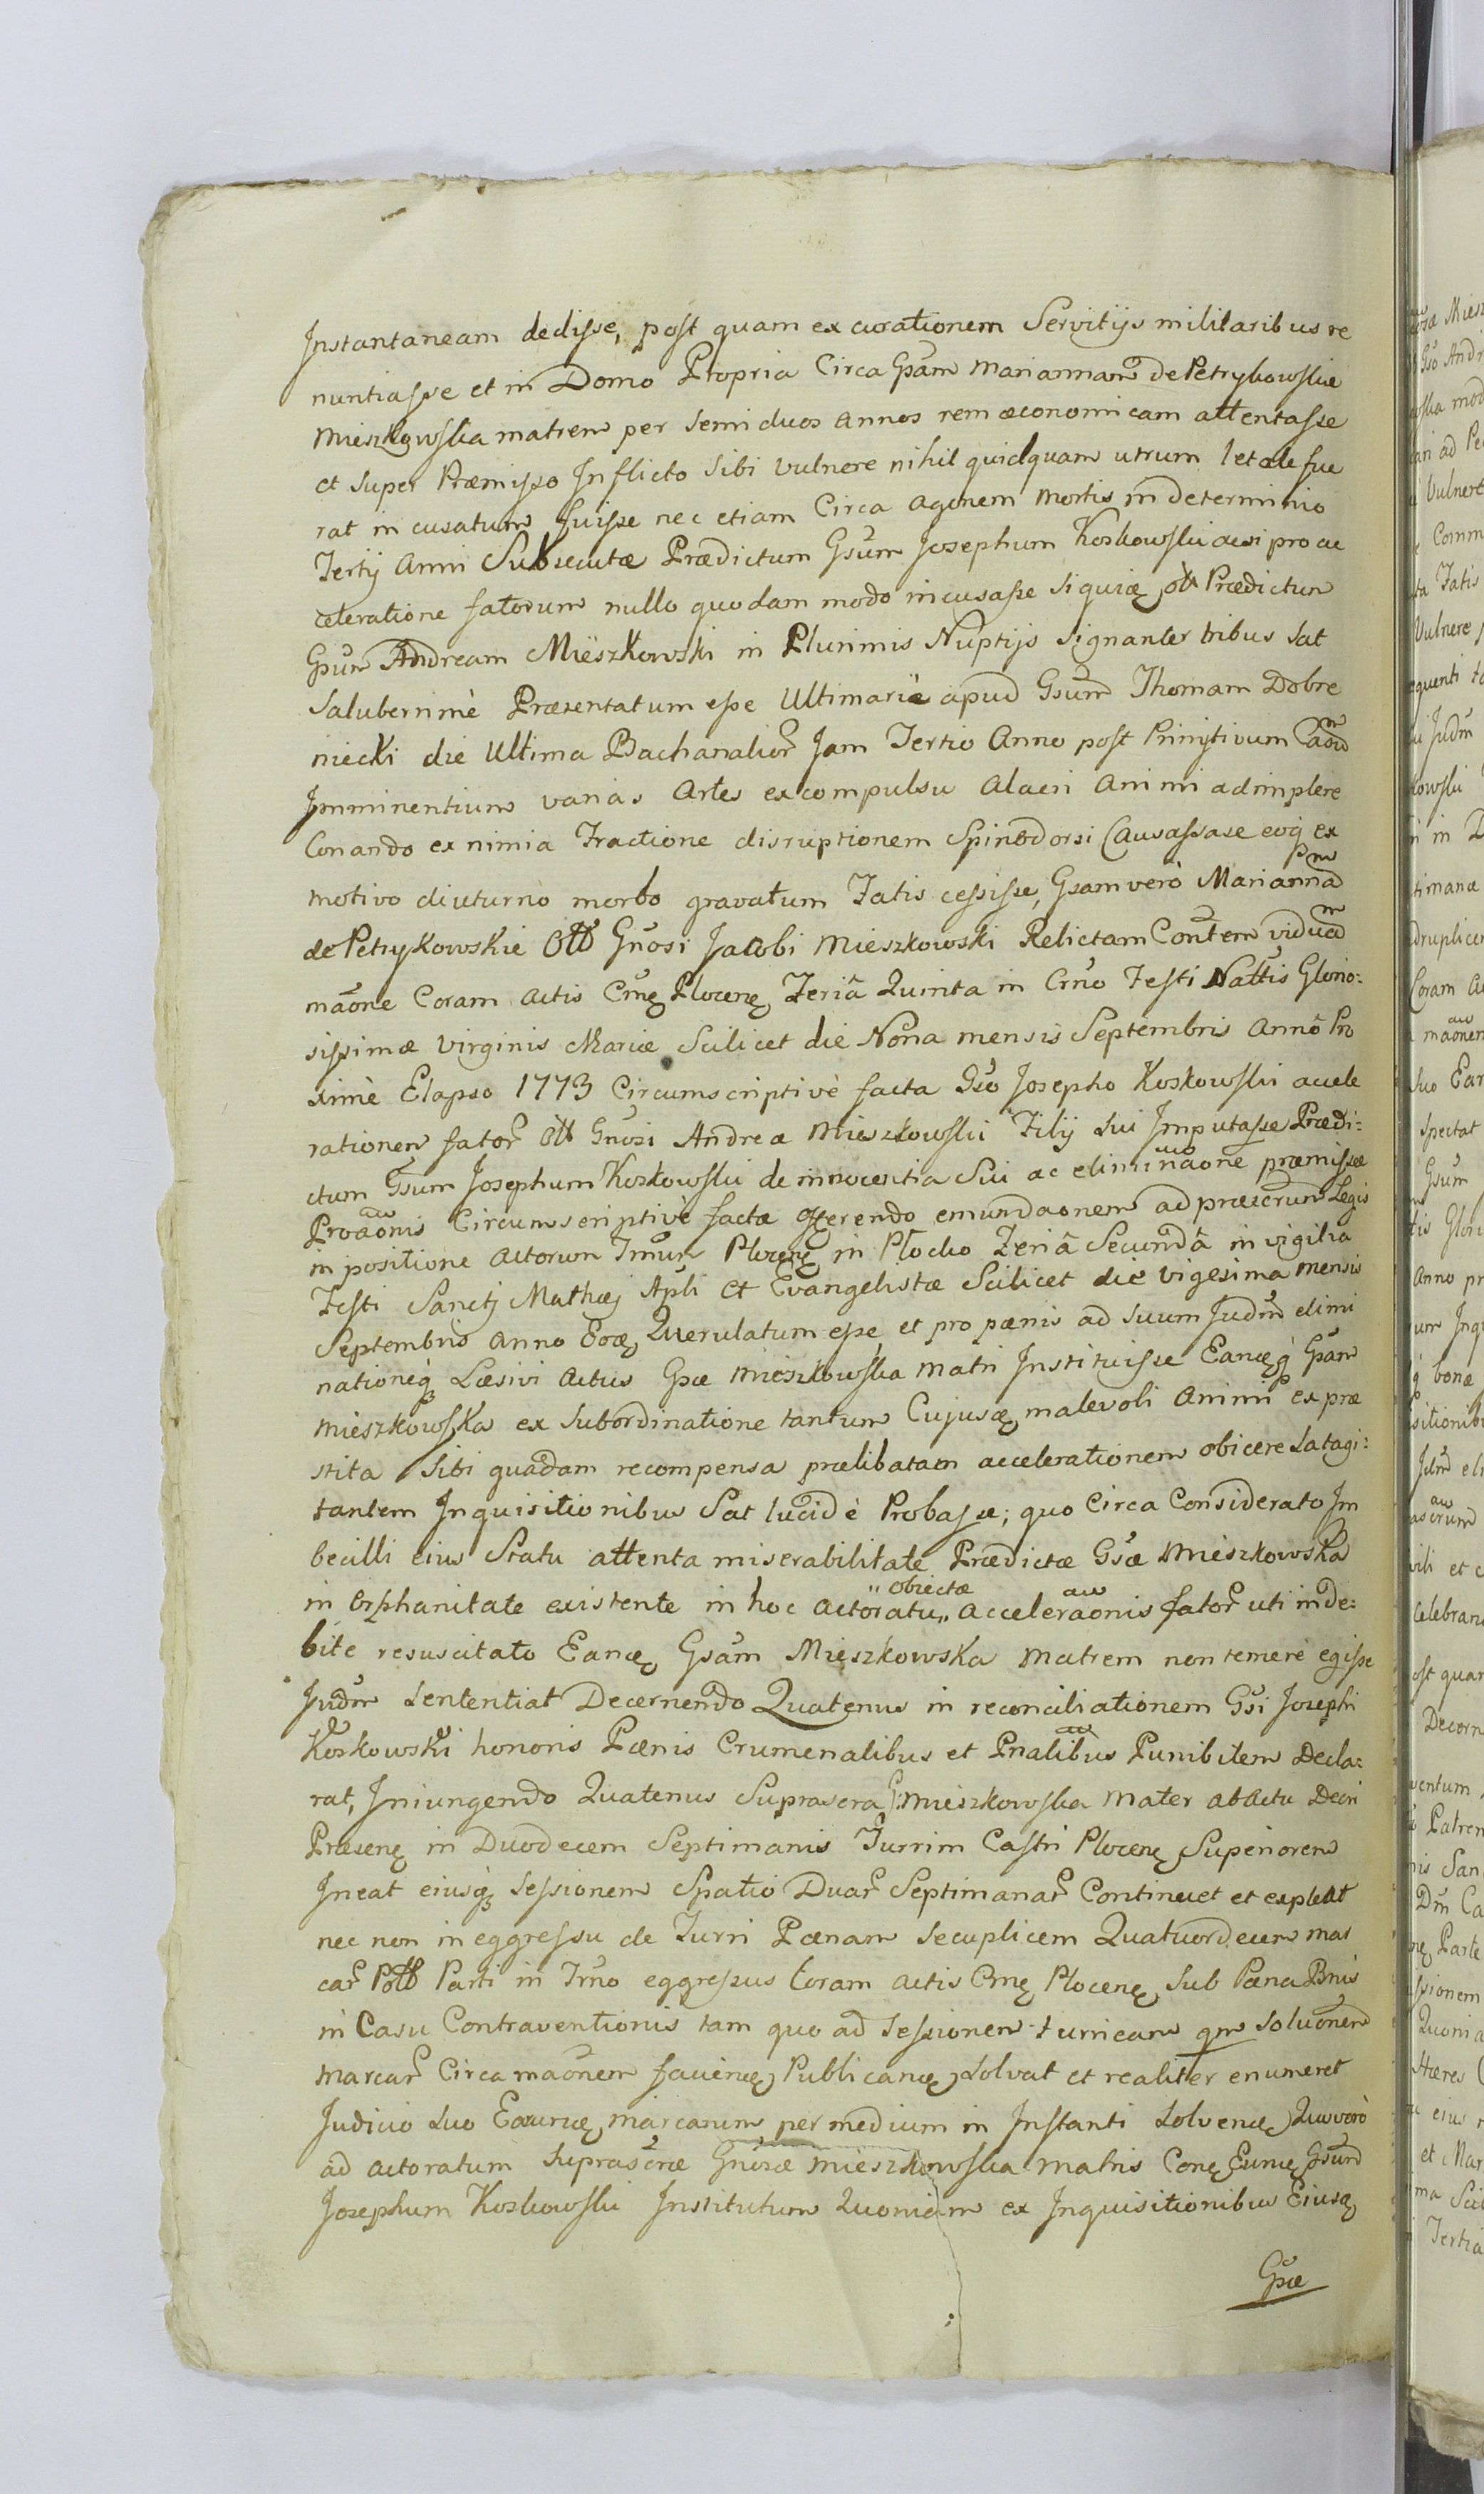 Instantaneam dedisse, post quam ex curationem Servitijs militaribus re
nuntiasse et in Domo Propria Circa Gsam Mariannam de Petrykowskie
Mieszkowska matrem per Semi duos Annos rem œconomicam attentasse
et Super Præmisso Inflicto Sibi Vulnere nihil quidquam utrum letale fue
rat in cusatum fuisse nec etiam Circa agonem mortis in determinio
Tertij Anni Subsecutæ Prædictum Gsum Josephum Koskowski acsi pro ac
celeratione fatorum nullo quodam modo incusasse siquidę ołł Prædictum
Gsum Andream Mieszkowski in Plurimis Nuptijs Signanter tribus Sat
Saluberrimè Præsentatum esse Ultimariè apud Gsum Thomam Dobre
niecki die Ultima Bachanalior Jam Tertio Anno post Primitivum Casum
Imminentium varias Artes ex compulsu Alacri Animi adimplere
Conando ex nimia Fractione disruptionem Spinodorsi Causassase eoq ex
motivo diuturno morbo gravatum Fatis cessisse, Gsam verò Mariannam
de Petrykowskie Ołł Gnosi Jacobi Mieszkowski Relictam Contem viduam
mãone Coram Actis Cmę Plocenę Feriâ Quinta in Crno Festi Nattis Glorio:
sissimæ Virginis Mariæ Scilicet die Nona mensis Septembris Annô Pro
ximè Elapso 1773 Circumscriptivè facta Gso Josepho Koskowski accele
rationem fator Ołł Gnosi Andreæ Mieszkowski Filij Sui Imputasse Prædi:
ctum Gsum Josephum Koskowski de innocentia Sui ac eliminãone præmissæ
Proãonis Circumscriptivè factæ offerendo emundaonem ad præscrum Legis
in positione Actorum Trnum Plocenę in Płocko Feriâ Secundâ in vigilia
Festi Sancti Mathæj Apli et Evangelistæ Scilicet die vigesima mensis
Septembris Anno Eoꝫ Querulatum esse et pro pænis ad Suum Judm elimi
nationeq Læsivi Actus Gsæ Mieszkowska Matri Instituisse Eandęq Gsam
Mieszkowska ex Subordinatione tantum Cujusdę malevoli Animi ex præ
stita Sibi quadam recompensa prælibatam accelerationem obicere Satagi:
tantem Inquisitionibus Sat lucidè Probasse; quo Circa Considerato Im
becilli eius Statu attenta miserabilitate Prædictæ Gsæ Mieszkowska
in Orphanitate existente in hoc Actoratu „ obiectæ Acceleraonis fator uti inde:
bite resuscitato Eandę Gsam Mieszkowska Matrem non temerè egisse
Judm Sententiat Decernendo Quatenus in reconciliationem Gsi Josephi
Koskowski honoris Pænis Crumenalibus et Pnalibus Punibilem Decla:
rat, Iniungendo Quatenus Suprascra G: Mieszkowska Mater ab Actu Decri
Præsenę in Duodecem Septimanis Turrim Castri Plocenę Superiorem
Ineat eiusqꝫ Sessionem Spatio Duar Septimanar Continuet et expleat
nec non in eggressu de Turri Pænam Secuplicem Quatuordecem mar
car Połł Parti in Trno eggressus Coram Actis Cmę Plocenę Sub Pæna Bnis
in Casu Contraventionis tam quo ad Sessionem turricam qm Solutionem
Marcar Circa maonem faciendę Publicandę Solvat et realiter enumeret
Judicio Suo Eaxurię marcarum per medium in Instanti Solvendę Quo verò
ad Actoratum Suprascræ Gnosæ Mieszkowska Matris Conę Eundę Gsum
Josephum Koskowski Institutum Quoniam ex Inquisitionibus Eiusdę
Gsæ